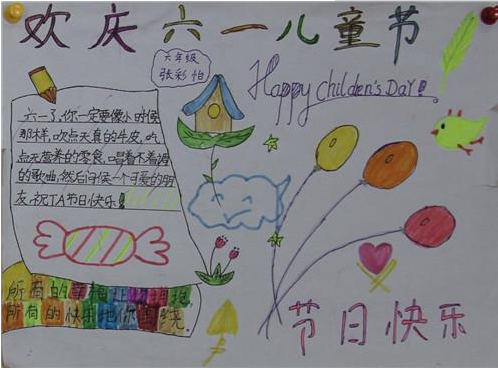 欢庆六一儿童节
六年级
张彩怡
Happy Children's DAY!
六一了,你一定要像小时候
那样,吹点天真的牛皮,吃
点无营养的零食,唱着不着调
的歌曲,然后问候一个可爱的朋
友,祝TA节日快乐!
所有的幸福让你拥抱
所有的快乐把你
节日快乐